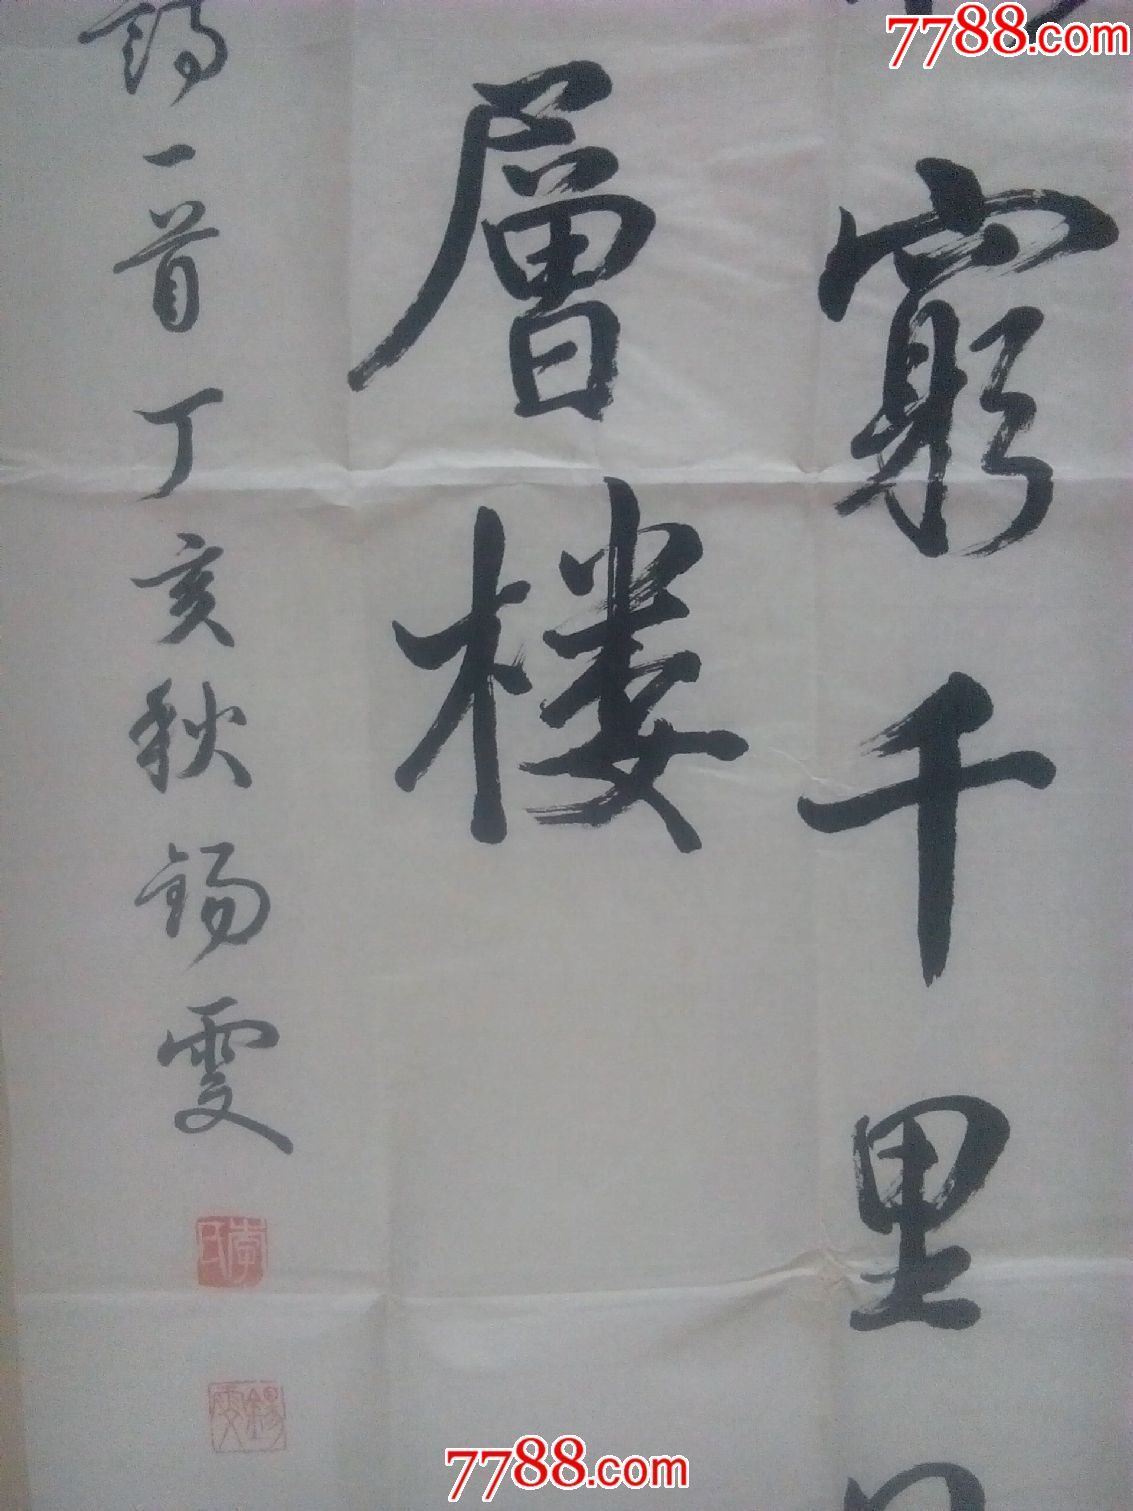 7788.com
窮千里目
層楼
詩一首丁亥秋錫雯
李氏
錫雯
7788.com